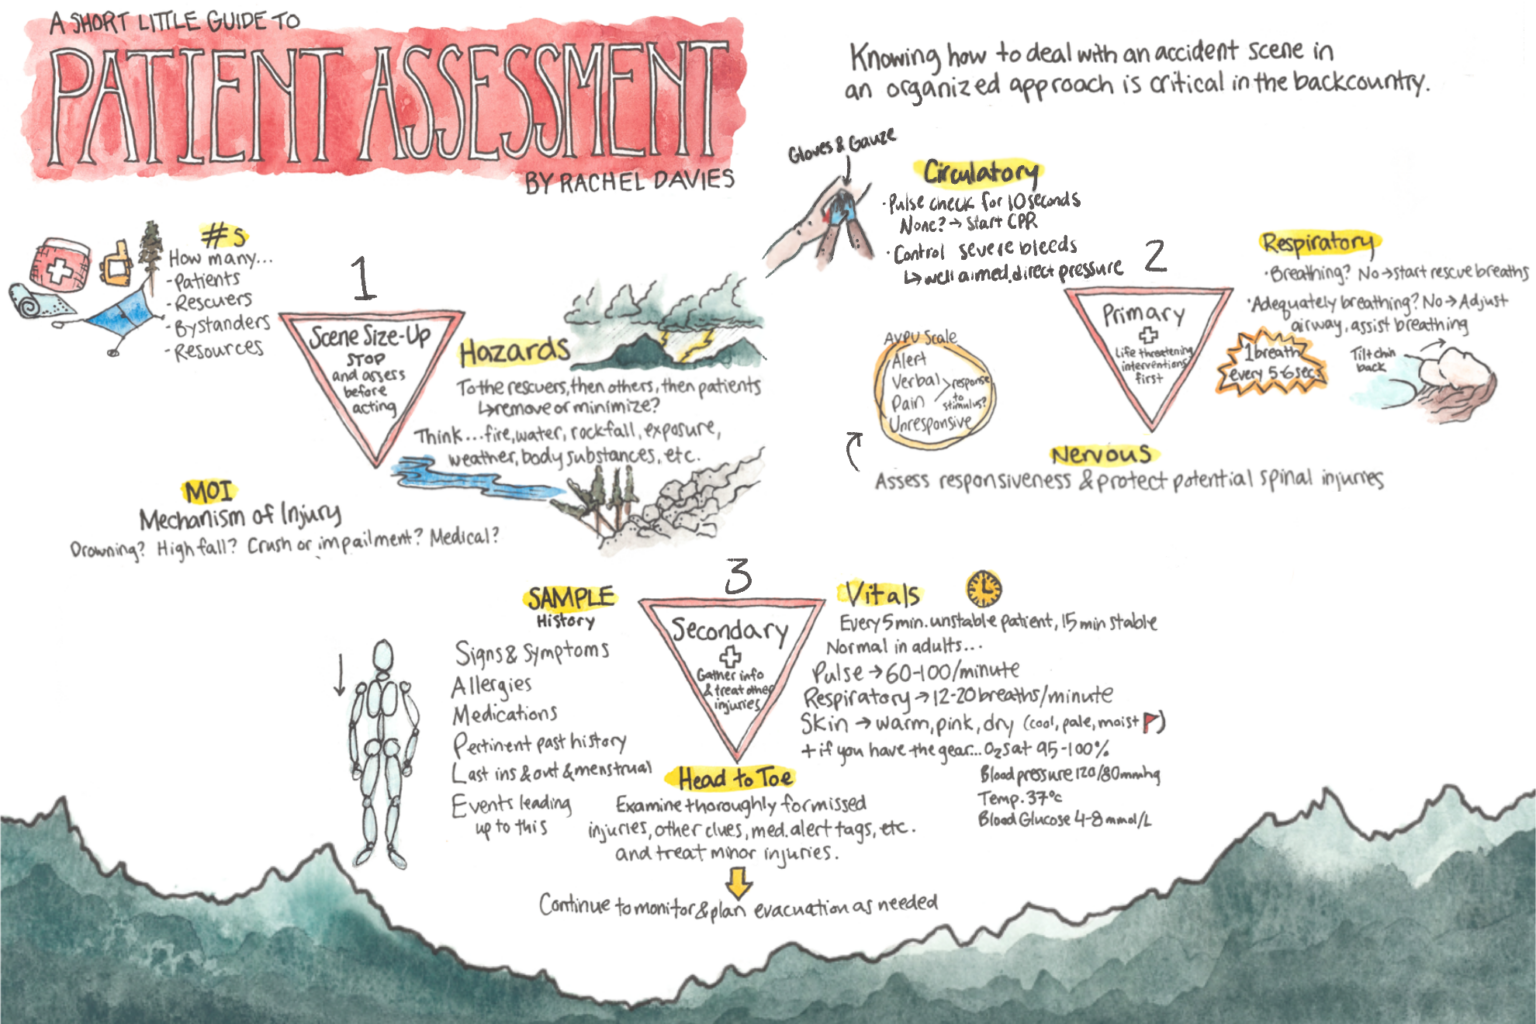 A SHORT LITTLE GUIDE TO
PATIENT ASSESSMENT
BY RACHEL DAVIES
Knowing how to deal with an accident scene in
an organized approach is critical in the backcountry.
1
Scene Size-Up
STOP
and assess
before
acting
#s
How many...
-Patients
-Rescuers
-Bystanders
-Resources
Hazards
To the rescuers, then others, then patients
↳remove or minimize?
Think...fire, water, rockfall, exposure,
weather, body substances, etc.
MOI
Mechanism of Injury
Drowning? High fall? Crush or impailment? Medical?
2
Primary
Life threatening
interventions
first
Gloves & Gauze
Circulatory
·Pulse check for 10 seconds
None? → Start CPR
·Control severe bleeds
↳well aimed, direct pressure
Respiratory
·Breathing? No→start rescue breaths
·Adequately breathing? No→Adjust
airway, assist breathing
1 breath
every 5-6 sec.
Tilt chin
back
AVPU Scale
Alert
Verbal
Pain
Unresponsive
response
to
stimulus?
Nervous
Assess responsiveness & protect potential spinal injuries
3
Secondary
Gather info
& treat other
injuries
SAMPLE
History
Signs & Symptoms
Allergies
Medications
Pertinent past history
Last ins & out & menstrual
Events leading
up to this
Vitals
Every 5 min. unstable patient, 15 min stable
Normal in adults...
Pulse → 60-100/minute
Respiratory → 12-20 breaths/minute
Skin → warm, pink, dry (cool, pale, moist )
+ if you have the gear... O₂ sat 95-100%
Blood pressure 120/80mmhg
Temp. 37°c
Blood Glucose 4-8 mmol/L
Head to Toe
Examine thoroughly for missed
injuries, other clues, med. alert tags, etc.
and treat minor injuries.
Continue to monitor & plan evacuation as needed